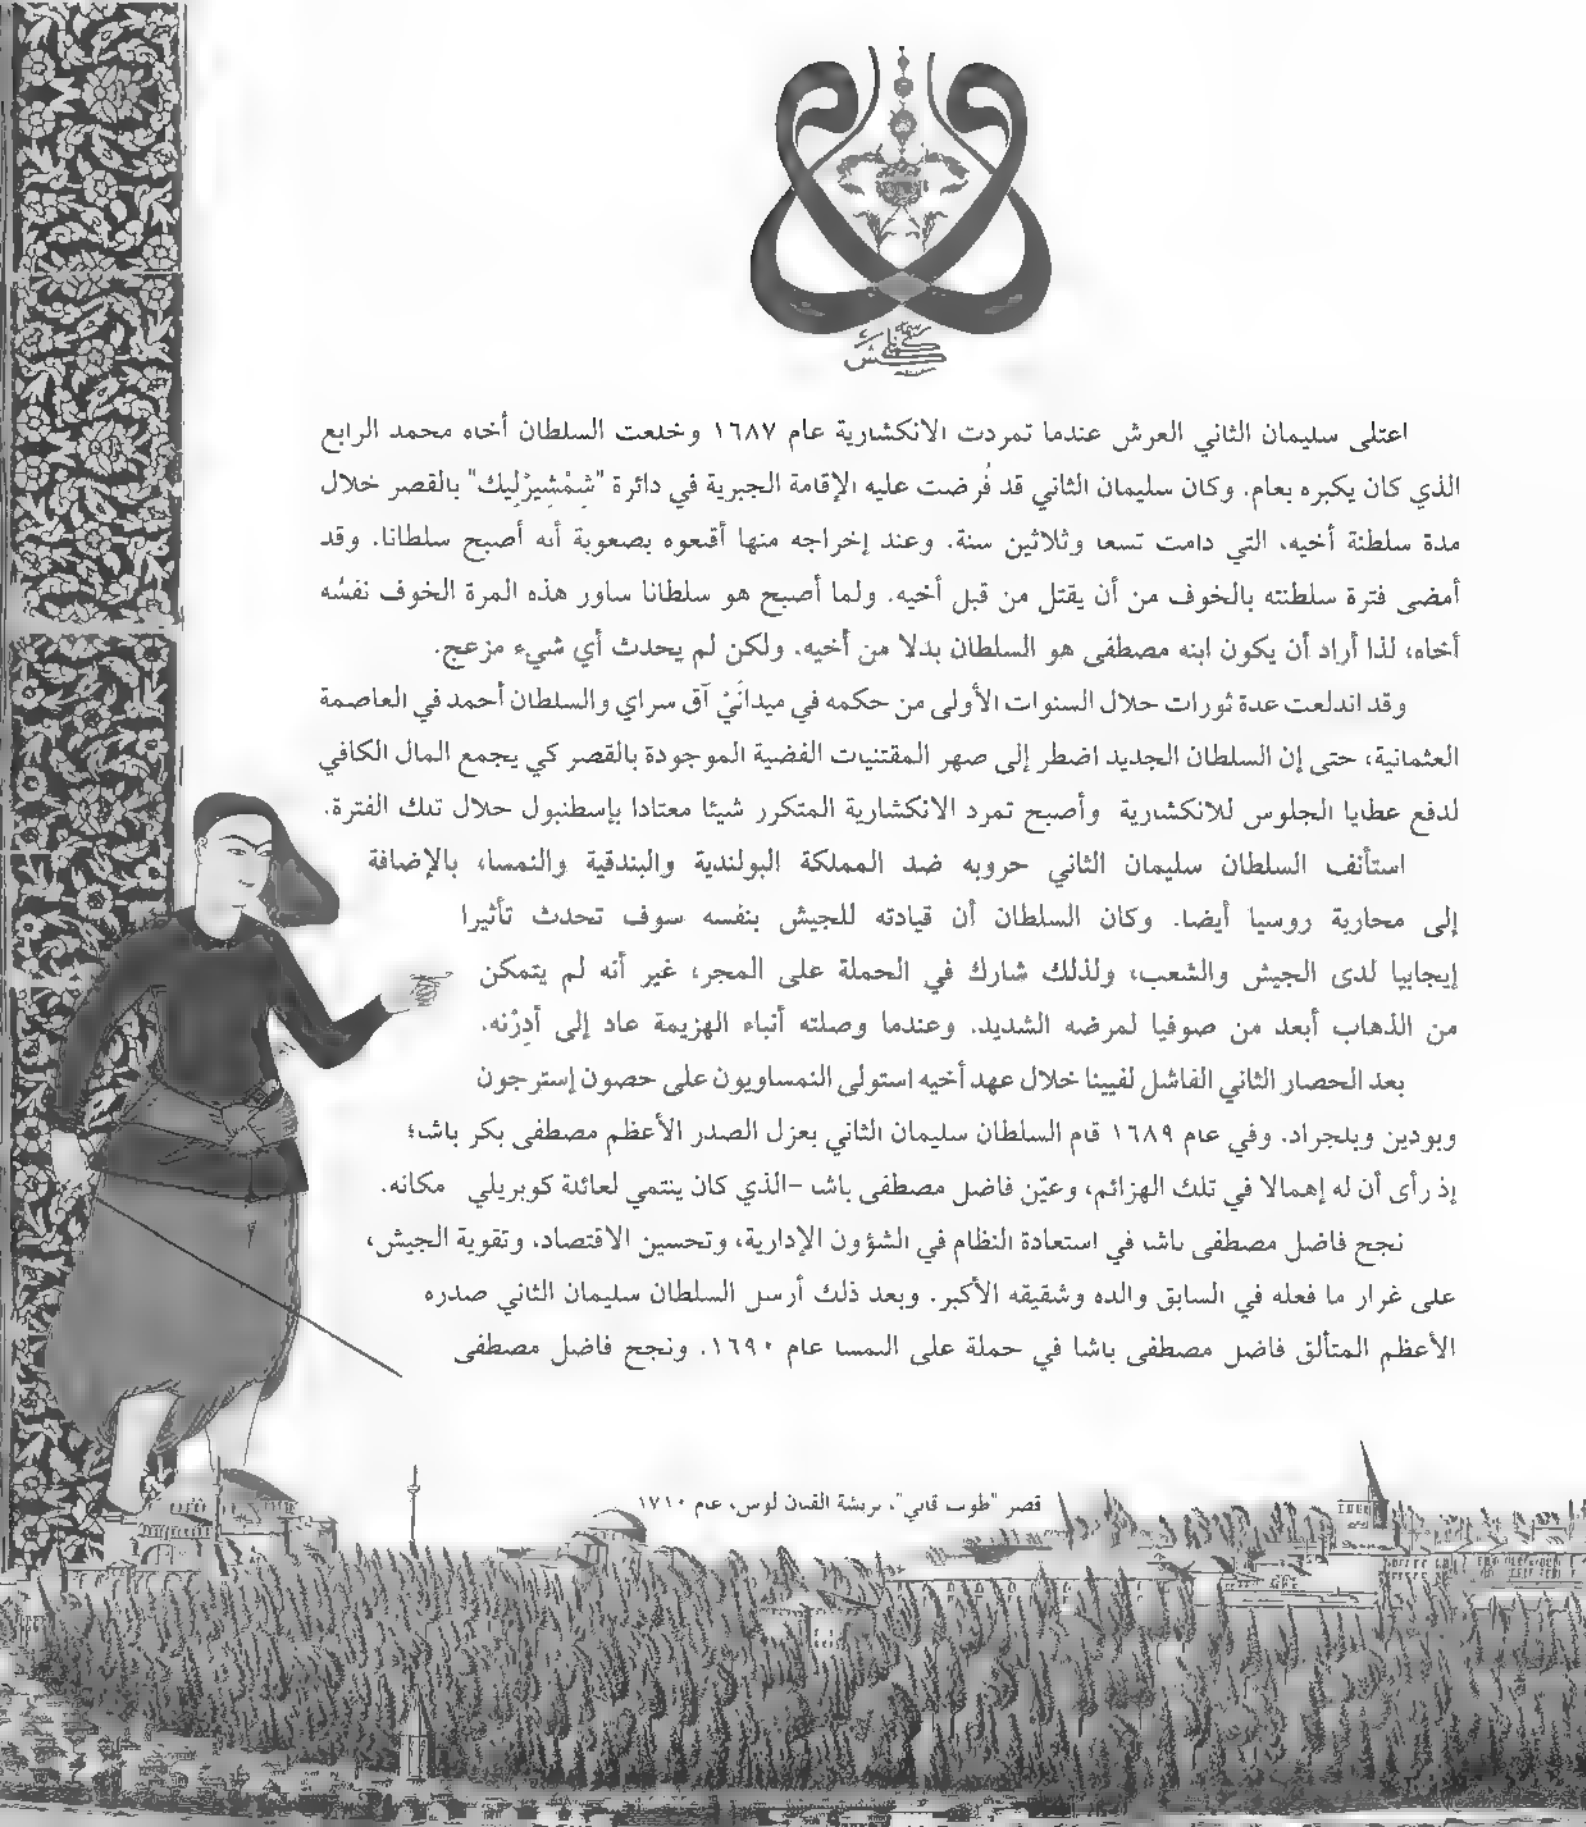 اعتلى سليمان الثاني العرش عندما تمردت الانكشارية عام ١٦٨٧ وخلعت السلطان أخاه محمد الرابع
الذي كان يكبره بعام. وكان سليمان الثاني قد فُرضت عليه الإقامة الجبرية في دائرة "شِمْشِيرْلِيك" بالقصر خلال
مدة سلطنة أخيه، التي دامت تسعا وثلاثين سنة. وعند إخراجه منها أقنعوه بصعوبة أنه أصبح سلطانا. وقد
أمضى فترة سلطنته بالخوف من أن يقتل من قبل أخيه. ولما أصبح هو سلطانا ساور هذه المرة الخوف نفسُه
أخاه، لذا أراد أن يكون ابنه مصطفى هو السلطان بدلا من أخيه. ولكن لم يحدث أي شيء مزعج.
وقد اندلعت عدة ثورات خلال السنوات الأولى من حكمه في ميدانَيْ آق سراي والسلطان أحمد في العاصمة
العثمانية، حتى إن السلطان الجديد اضطر إلى صهر المقتنيات الفضية الموجودة بالقصر كي يجمع المال الكافي
لدفع عطايا الجلوس للانكشارية وأصبح تمرد الانكشارية المتكرر شيئا معتادا بإسطنبول خلال تلك الفترة.
استأنف السلطان سليمان الثاني حروبه ضد المملكة البولندية والبندقية والنمسا، بالإضافة
إلى محاربة روسيا أيضا. وكان السلطان أن قيادته للجيش بنفسه سوف تحدث تأثيرا
إيجابيا لدى الجيش والشعب، ولذلك شارك في الحملة على المجر، غير أنه لم يتمكن
من الذهاب أبعد من صوفيا لمرضه الشديد. وعندما وصلته أنباء الهزيمة عاد إلى أدِرْنه.
بعد الحصار الثاني الفاشل لفيينا خلال عهد أخيه استولى النمساويون على حصون إسترجون
وبودين وبلجراد. وفي عام ١٦٨٩ قام السلطان سليمان الثاني بعزل الصدر الأعظم مصطفى بكر باشا؛
إذ رأى أن له إهمالا في تلك الهزائم، وعيّن فاضل مصطفى باشا -الذي كان ينتمي لعائلة كوبريلي مكانه.
نجح فاضل مصطفى باشا في استعادة النظام في الشؤون الإدارية، وتحسين الاقتصاد، وتقوية الجيش،
على غرار ما فعله في السابق والده وشقيقه الأكبر. وبعد ذلك أرسل السلطان سليمان الثاني صدره
الأعظم المتألق فاضل مصطفى باشا في حملة على النمسا عام ١٦٩٠. ونجح فاضل مصطفى
قصر "طوب قابي"، بريشة الفنان لوس، عام ١٧١٠